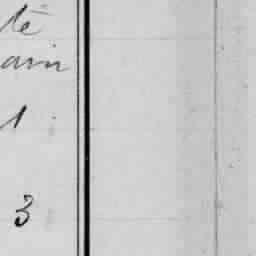 té
ain
1
3